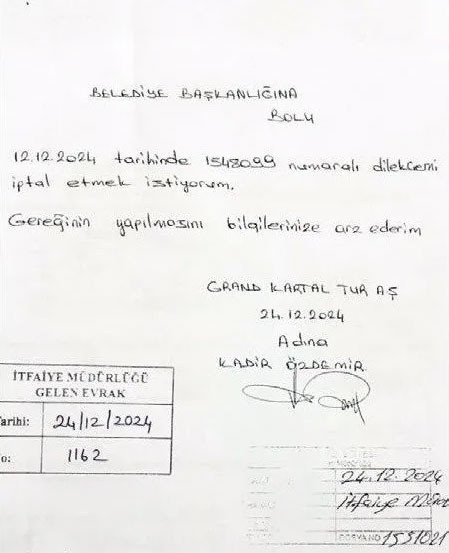 BELEDİYE BAŞKANLIĞINA
BOLU
12.12.2024 tarihinde 1548099 numaralı dilekçemi
iptal etmek istiyorum.
Gereğinin yapılmasını bilgilerinize arz ederim
GRAND KARTAL TUR AŞ
24.12.2024
Adına
KADİR ÖZDEMİR
İTFAİYE MÜDÜRLÜĞÜ
GELEN EVRAK
Tarihi: 24/12/2024
No: 1162
24.12.2024
İtfaiye Müd
DOSYA NO 1551021